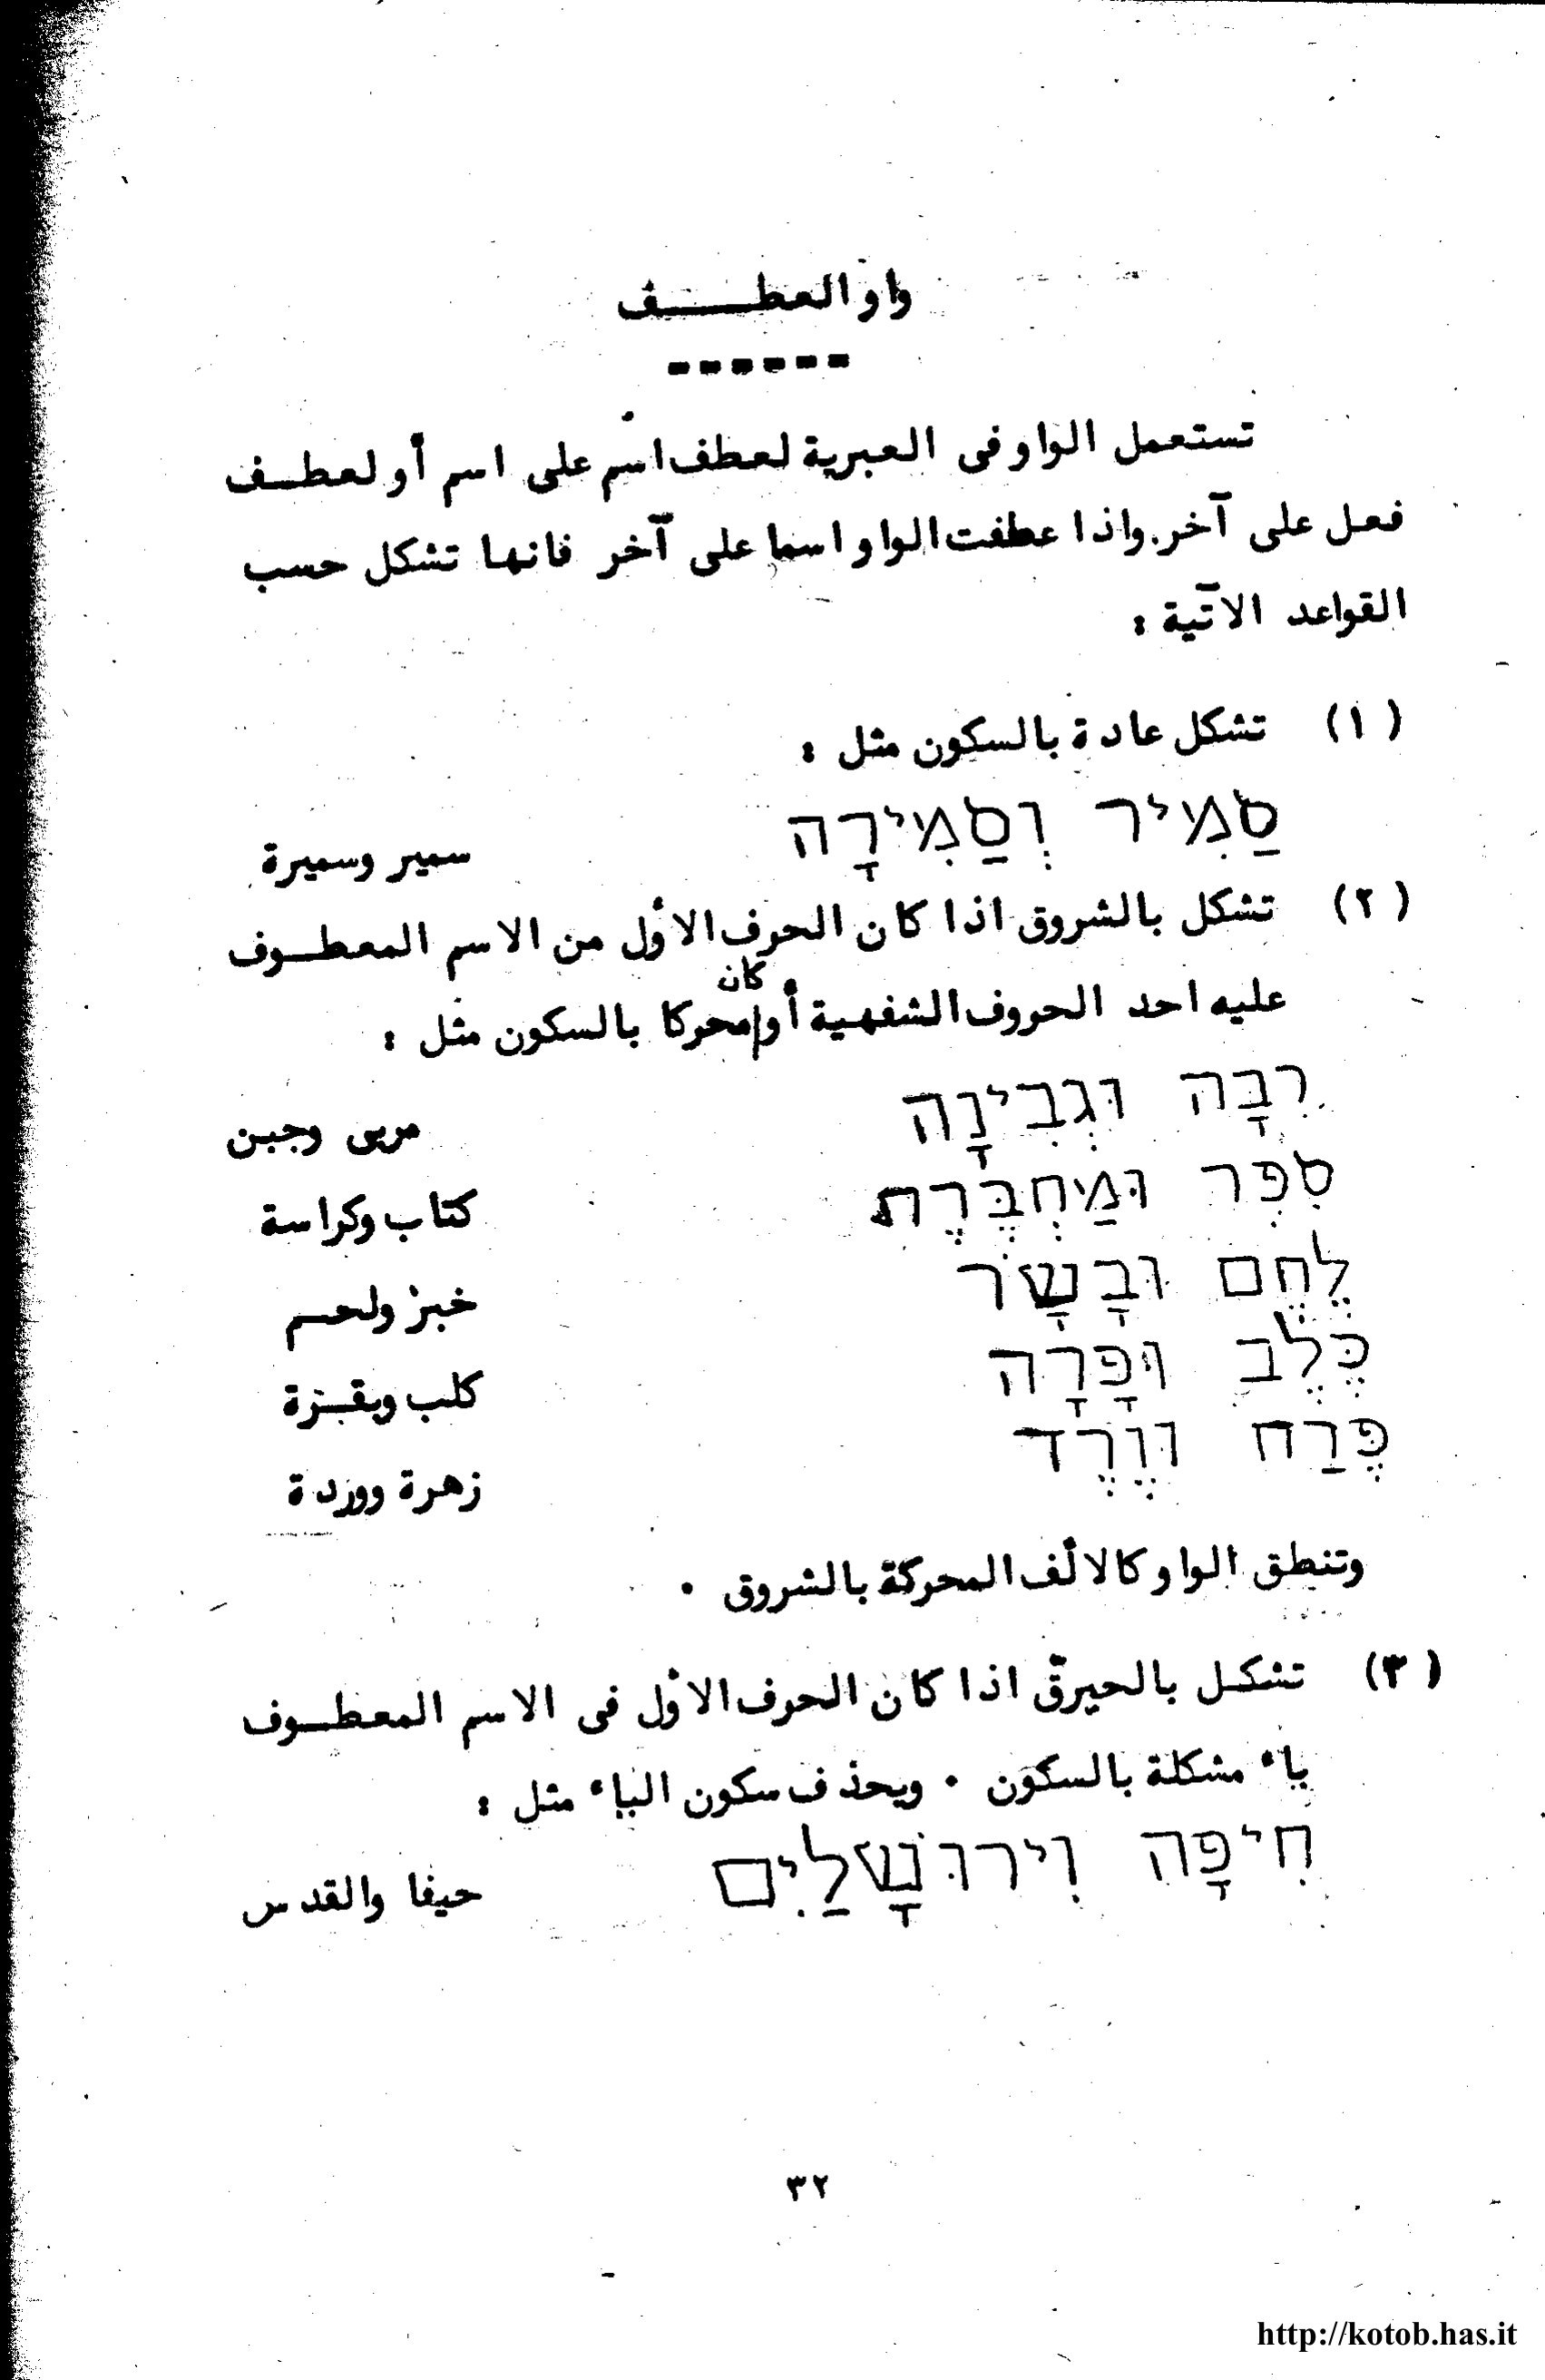 واو العطف
تستعمل الواو فى العبرية لعطف اسم على اسم أو لعطف
فعل على آخر. واذا عطفت الواو اسما على آخر فانها تشكل حسب
القواعد الآتية :
(١) تشكل عادة بالسكون مثل :
סַמִיר וְסַמִירָה سمير وسميرة
(٢) تشكل بالشروق اذا كان الحرف الأول من الاسم المعطوف
عليه احد الحروف الشفهية أو كان محركا بالسكون مثل :
רִבָּה וּגְבִינָה مربى وجبن
סִפְּר וּמַחְבֶּרֶת كتاب وكراسة
לֶחֶם וּבָשָׂר خبز ولحم
כֶּלֶב וּפָּרָה كلب وبقرة
פֶּרַח וּוֶרֶד زهرة ووردة
وتنطق الواو كالألف المحركة بالشروق .
(٣) تشكل بالحيرق اذا كان الحرف الأول فى الاسم المعطوف
ياء مشكلة بالسكون . ويحذف سكون الياء مثل :
חִיפָּה וִירוּשָׁלַיִם حيفا والقدس
٣٢
http://kotob.has.it